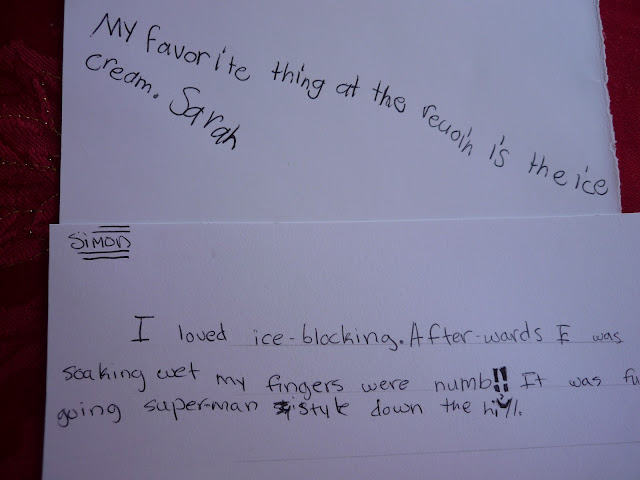 My favorite thing at the reuoin is the ice
cream. Sarah
Simon
I loved ice-blocking. After-wards I was
soaking wet my fingers were numb!! It was fu
going super-man style down the hill.